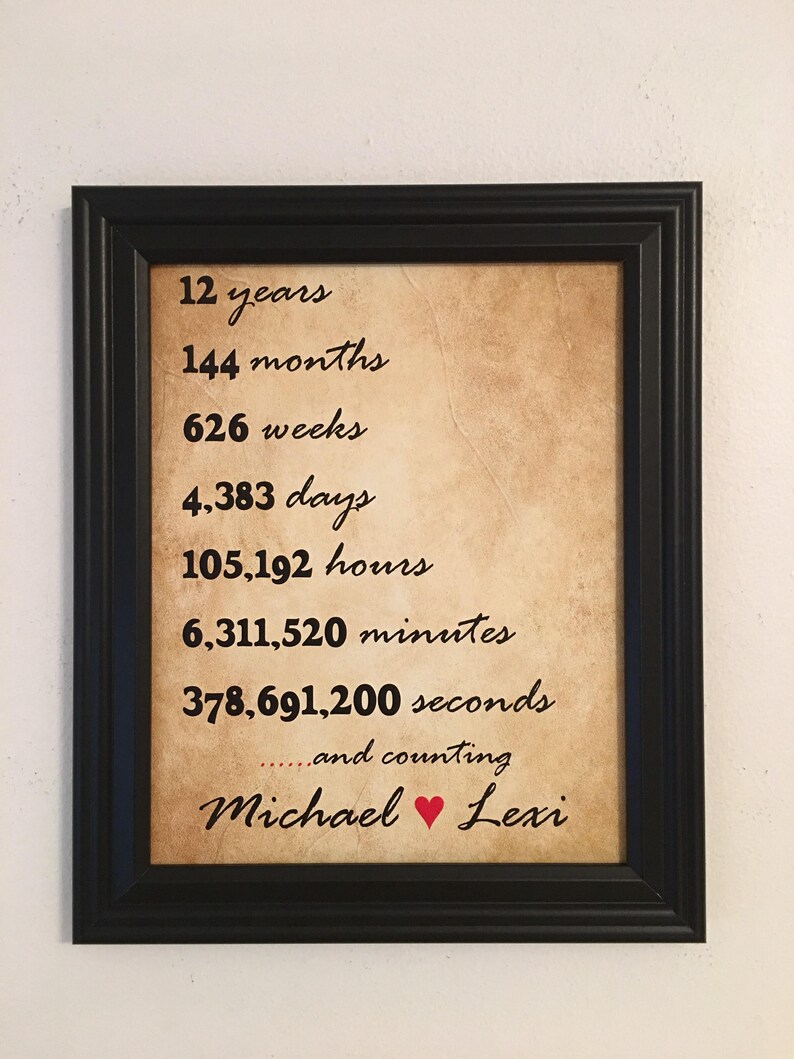 12 years
144 months
626 weeks
4,383 days
105,192 hours
6,311,520 minutes
378,691,200 seconds
......and counting
Michael ♥ Lexi